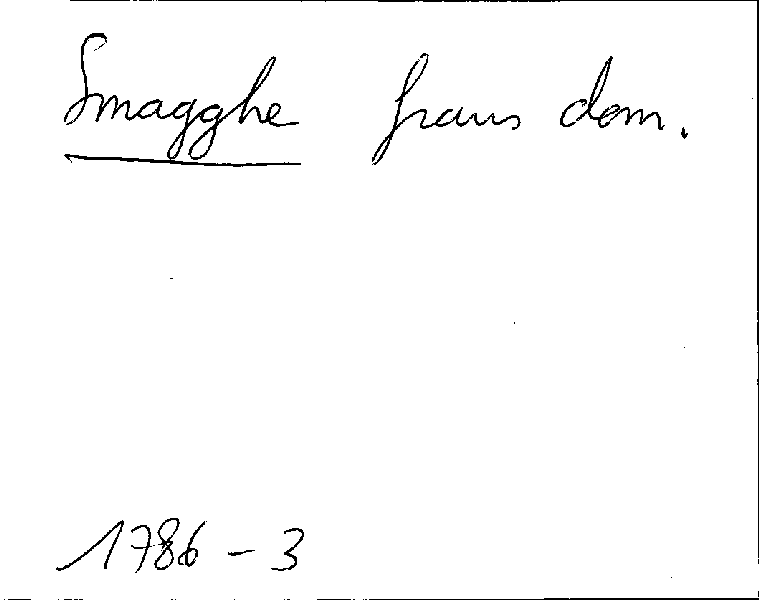 Smagghe frans dom.
1786 - 3